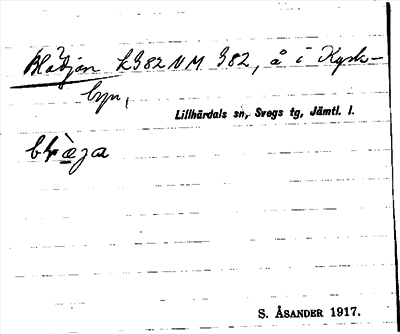 Blädjan k 382 NM 382, å i Kyrk-
byn,
Lillhärdals sn, Svegs tg, Jämtl. l.
S. ÅSANDER 1917.